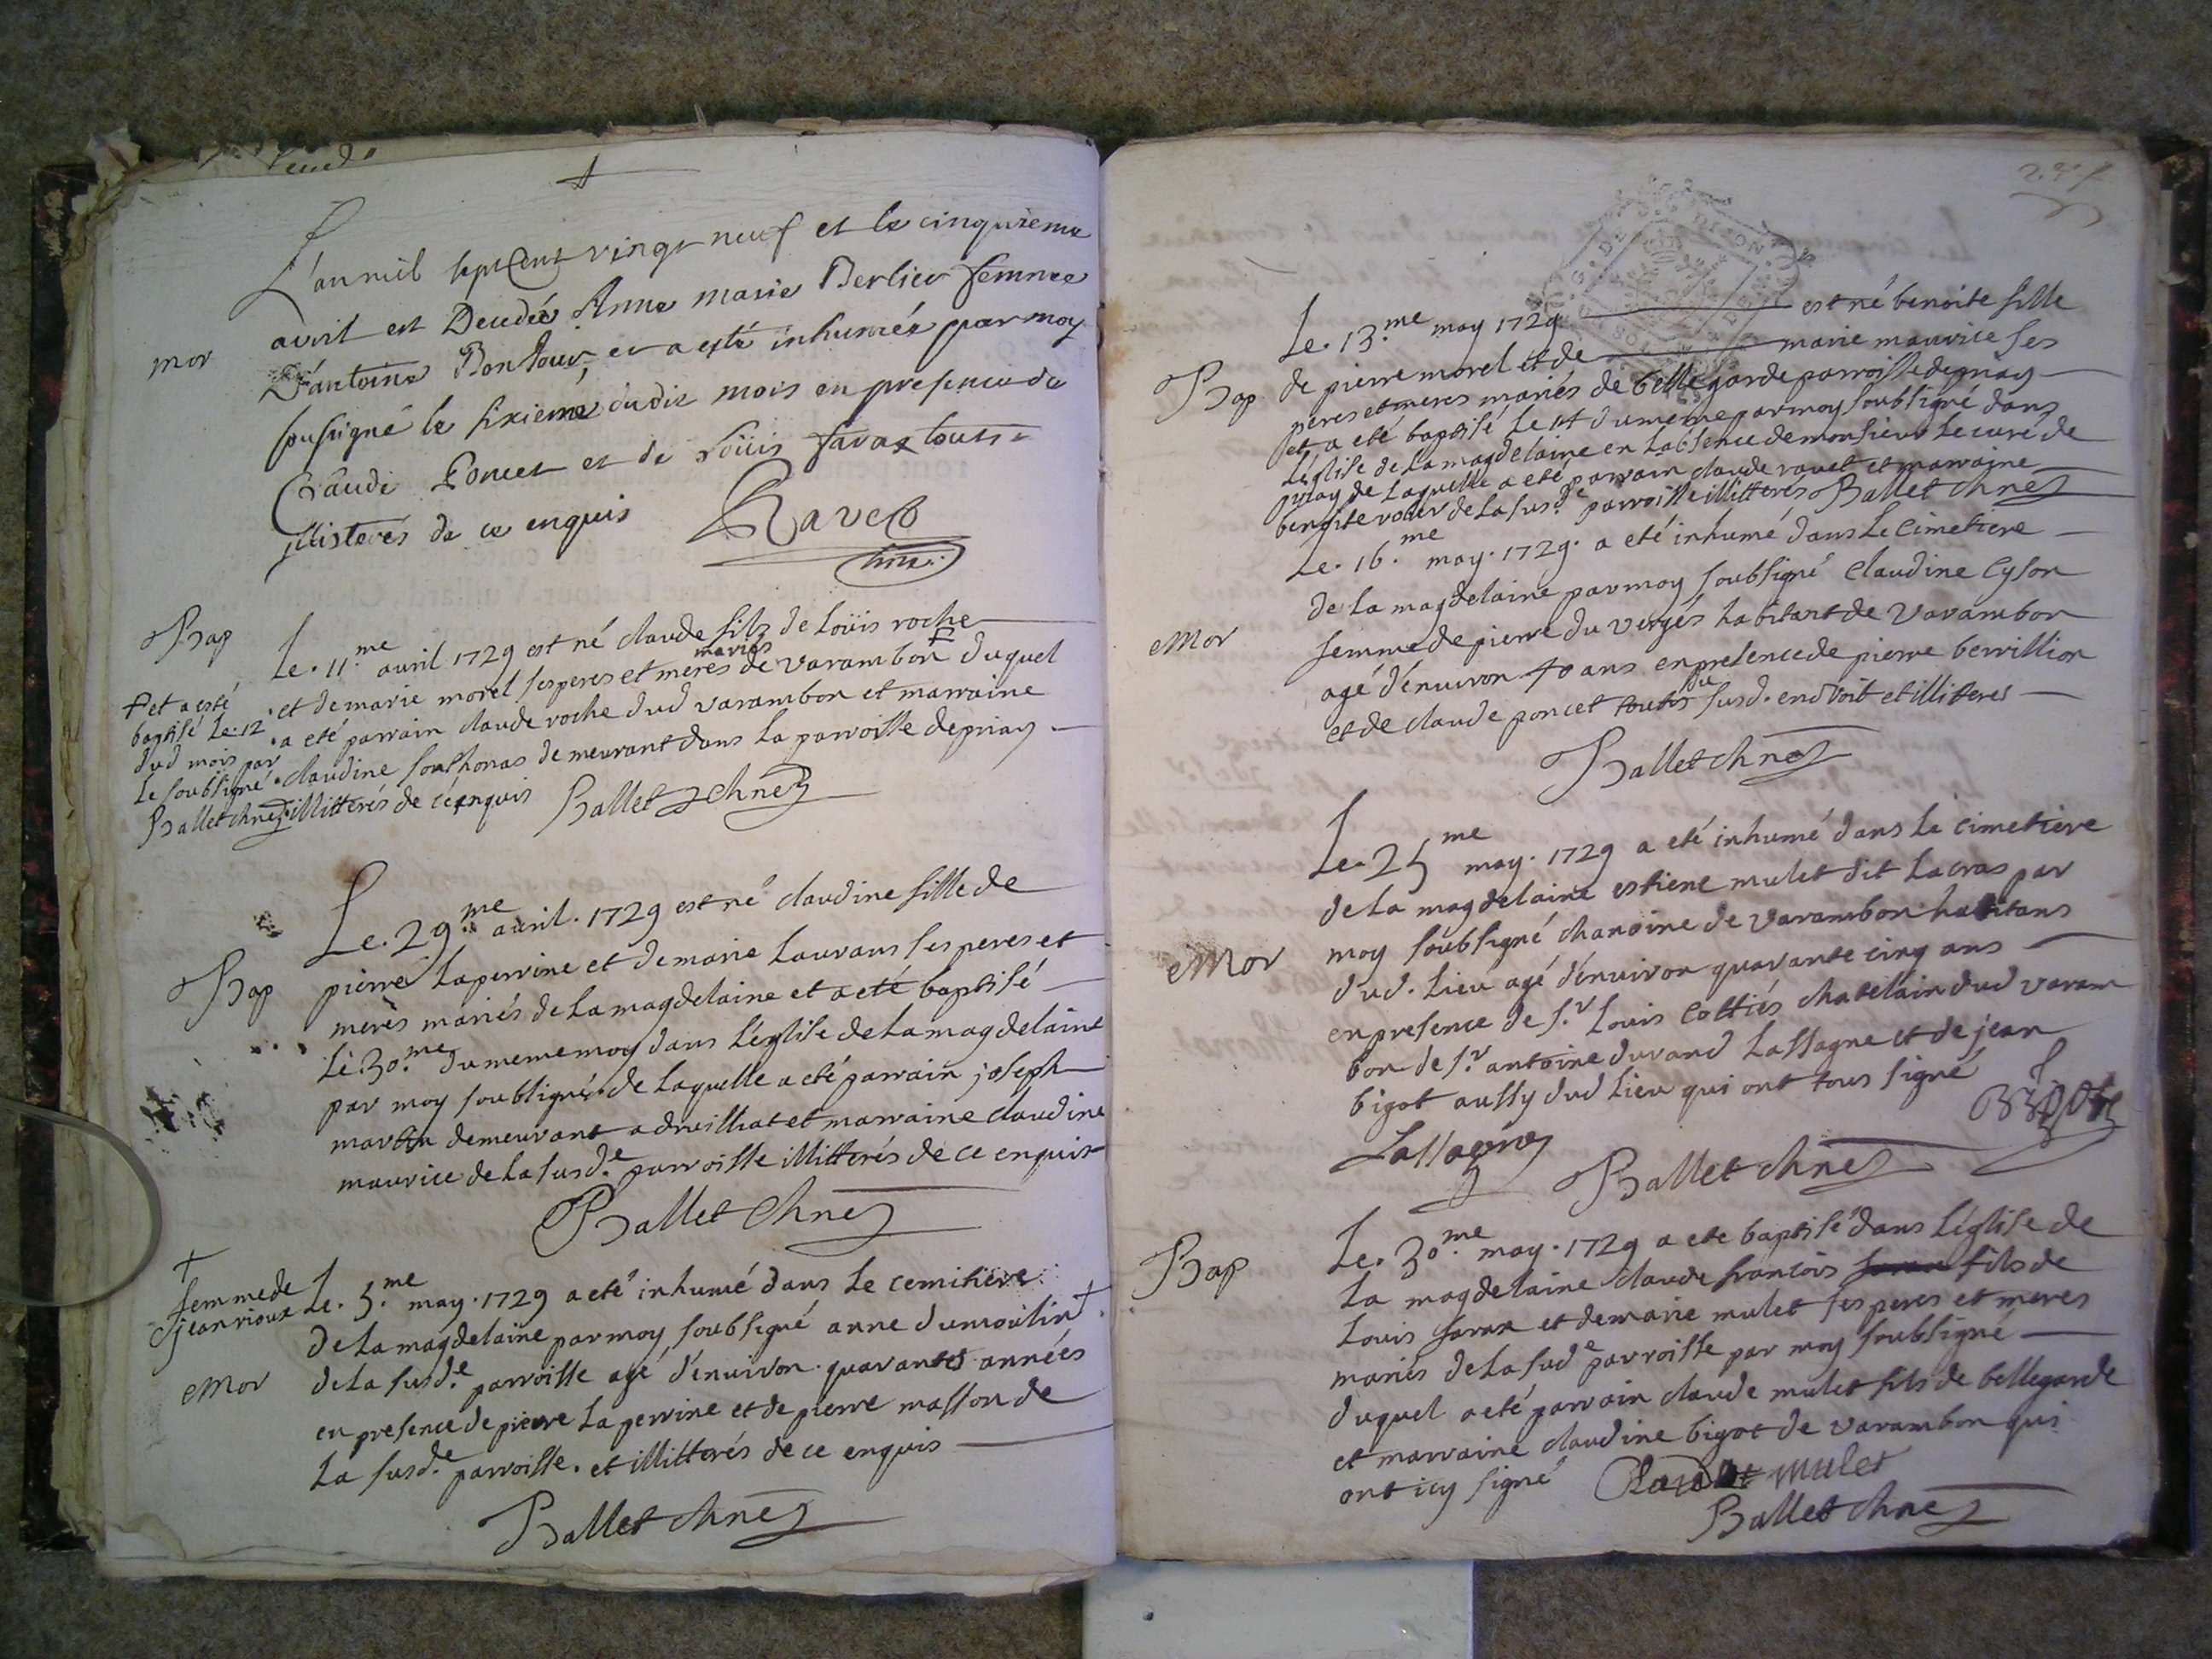 L'an mil sept Cent vingt neuf et le cinquieme
mor
avril est Decedée Anne marie Berlier femme
D'antoine Bondour, et a esté inhumée par moy
sousigné le sixieme dudit mois en presence de
Claude Poncet et de Loüis favax touts
illisterés de ce enquis Ravet
Bap
Le. 11.me avril 1729 est né claude fils de Loüis roche
et de marie morel ses peres et meres mariés de varambon duquel
a eté parrain claude roche dud varambon et marraine
claudine fonthonas demeurant dans la parroisse de priay
illitterés de ce enquis Ballet chne
et a esté
baptisé le. 12
dud mois par
le soubsigné
Ballet chne
Le. 29.me auril. 1729 est né claudine fille de
Bap
pierre laperrine et de marie Laurans ses peres et
meres mariés de la magdelaine et a eté baptisé
le 30.me du meme moy dans l'église de la magdelaine
par moy soubsigné de laquelle a eté parrain joseph
martin demeurant a druilliat et marraine claudine
maurice de la susde parroisse illitterés de ce enquis
Ballet chne
femme de
jean rioux
Le. 5.me may. 1729 a eté inhumé dans le cemitiere
de la magdelaine par moy soubsigné anne dumoulin
mor
de la susde parroisse agé d'enuiron quarantes années
en presence de pierre laperrine et de pierre masson de
la susde parroisse. et illitterés de ce enquis
Ballet chne
Le. 13.me may 1729 est né benoite fille
Bap
de pierre morel et de marie maurice ses
peres et meres mariés de bellegarde parroisse de priay
et a eté baptisé le 14 du meme par moy soubsigné dans
l'église de la magdelaine en l'absence de monsieur le curé de
priay de laquelle a eté parrain claude ravet et marraine
benoite de la susde parroisse illitterés Ballet chne
Le. 16.me may. 1729. a eté inhumé dans le cimetiere
de la magdelaine par moy soubsigné claudine Cyson
mor
femme de pierre du vergés habitant de varambon
agé d'énuiron 40 ans en presence de pierre berrillion
et de claude poncet toutts du susd. endroit et illitteres
Ballet chne
Le. 25me may. 1729 a eté inhumé dans le cimetiere
de la magdelaine estiene mulet dit lacras par
mor
moy soubsigné chanoine de varambon habitans
dud. lieu agé d'énuiron quarante cinq ans
en presence de s.r Louis Cottiés chatelain dud varam
bon de s.r antoine durand Lassagne et de jean
bigot aussy dud lieu qui ont tous signé
Bigot
Lassagne
Ballet chne
Bap
Le. 30.me may. 1729 a ete baptisé dans l'église de
la magdelaine claude francois fils de
Louis favax et de marie mulet ses peres et meres
mariés de la sude parroisse par moy soubsigné
duquel a eté parrain claude mulet fils de bellegarde
et marraine claudine bigot de varambon qui
ont icy signé Claude mulet
Ballet chne